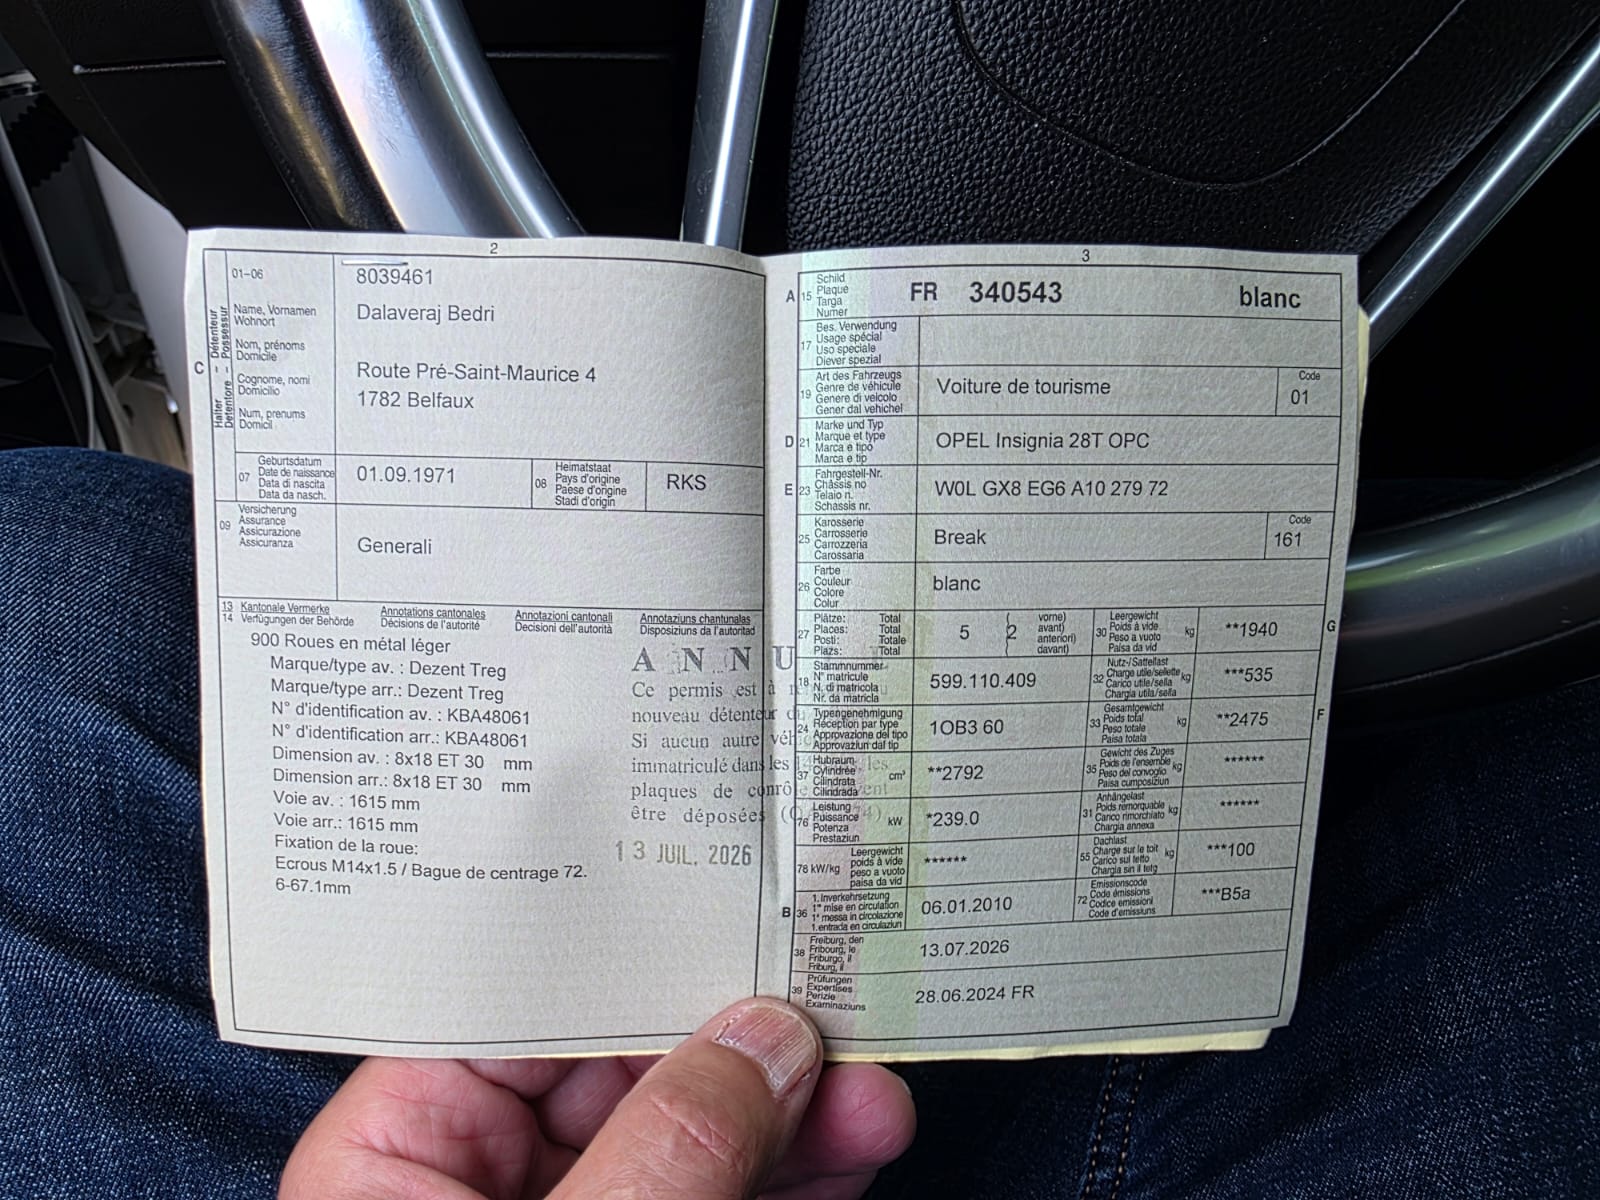 2
01–06
8039461
Halter – Détenteur
Detentore – Possessur
C
Name, Vornamen
Wohnort
Nom, prénoms
Domicile
Cognome, nomi
Domicilio
Num, prenums
Domicil
Dalaveraj Bedri
Route Pré-Saint-Maurice 4
1782 Belfaux
07
Geburtsdatum
Date de naissance
Data di nascita
Data da nasch.
01.09.1971
08
Heimatstaat
Pays d'origine
Paese d'origine
Stadi d'origin
RKS
09
Versicherung
Assurance
Assicurazione
Assicuranza
Generali
13 Kantonale Vermerke Annotations cantonales Annotazioni cantonali Annotaziuns chantunalas
14 Verfügungen der Behörde Décisions de l'autorité Decisioni dell'autorità Disposiziuns da l'autoritad
900 Roues en métal léger
Marque/type av. : Dezent Treg
Marque/type arr.: Dezent Treg
N° d'identification av. : KBA48061
N° d'identification arr.: KBA48061
Dimension av. : 8x18 ET 30 mm
Dimension arr.: 8x18 ET 30 mm
Voie av. : 1615 mm
Voie arr.: 1615 mm
Fixation de la roue:
Ecrous M14x1.5 / Bague de centrage 72.
6-67.1mm
A N N U
Ce permis est à
nouveau détenteur
Si aucun autre
immatriculé dans les
plaques de
être déposées
13 JUIL. 2026
3
A 15
Schild
Plaque
Targa
Numer
FR 340543 blanc
17
Bes. Verwendung
Usage spécial
Uso speciale
Diever spezial
19
Art des Fahrzeugs
Genre de véhicule
Genere di veicolo
Gener dal vehichel
Voiture de tourisme
Code
01
D 21
Marke und Typ
Marque et type
Marca e tipo
Marca e tip
OPEL Insignia 28T OPC
E 23
Fahrgestell-Nr.
Châssis no
Telaio n.
Schassis nr.
W0L GX8 EG6 A10 279 72
25
Karosserie
Carrosserie
Carrozzeria
Carossaria
Break
Code
161
26
Farbe
Couleur
Colore
Colur
blanc
27
Plätze: Total
Places: Total
Posti: Totale
Plazs: Total
5
(2
vorne)
avant)
anteriori)
davant)
30
Leergewicht
Poids à vide
Peso a vuoto
Paisa da vid
kg
**1940
G
18
Stammnummer
N° matricule
N. di matricola
Nr. da matricla
599.110.409
32
Nutz-/Sattellast
Charge utile/sellette
Carico utile/sella
Chargia utila/sella
kg
***535
24
Typengenehmigung
Réception par type
Approvazione del tipo
Approvaziun dal tip
1OB3 60
33
Gesamtgewicht
Poids total
Peso totale
Paisa totala
kg
**2475
F
37
Hubraum
Cylindrée
Cilindrata
Cilindrada
cm³
**2792
35
Gewicht des Zuges
Poids de l'ensemble
Peso del convoglio
Paisa cumposiziun
kg
******
76
Leistung
Puissance
Potenza
Prestaziun
kW
*239.0
31
Anhängelast
Poids remorquable
Carico rimorchiato
Chargia annexa
kg
******
78 kW/kg
Leergewicht
poids à vide
peso a vuoto
paisa da vid
******
55
Dachlast
Charge sur le toit
Carico sul tetto
Chargia sin il tetg
kg
***100
B 36
1. Inverkehrsetzung
1re mise en circulation
1a messa in circolazione
1. entrada en circulaziun
06.01.2010
72
Emissionscode
Code émissions
Codice emissioni
Code d'emissiuns
***B5a
38
Freiburg, den
Fribourg, le
Friburgo, il
Friburg, il
13.07.2026
39
Prüfungen
Expertises
Perizie
Examinaziuns
28.06.2024 FR